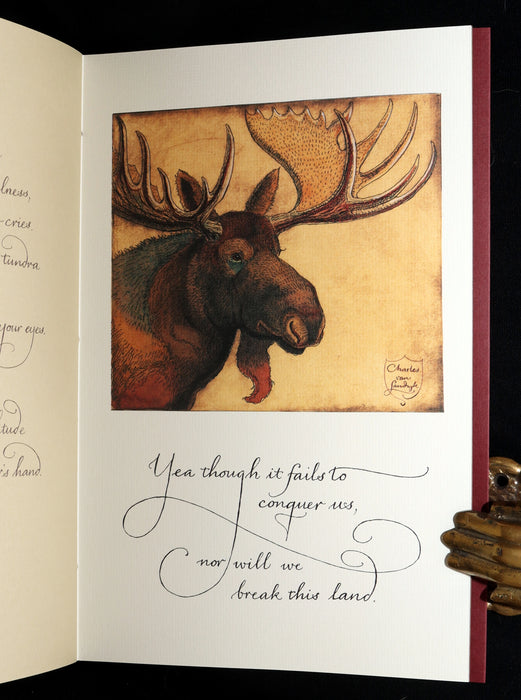 lness,
-cries
tundra
your eyes.
tude
's hand.
Charles
van
Yea though it fails to
conquer us,
nor will we
break this land.